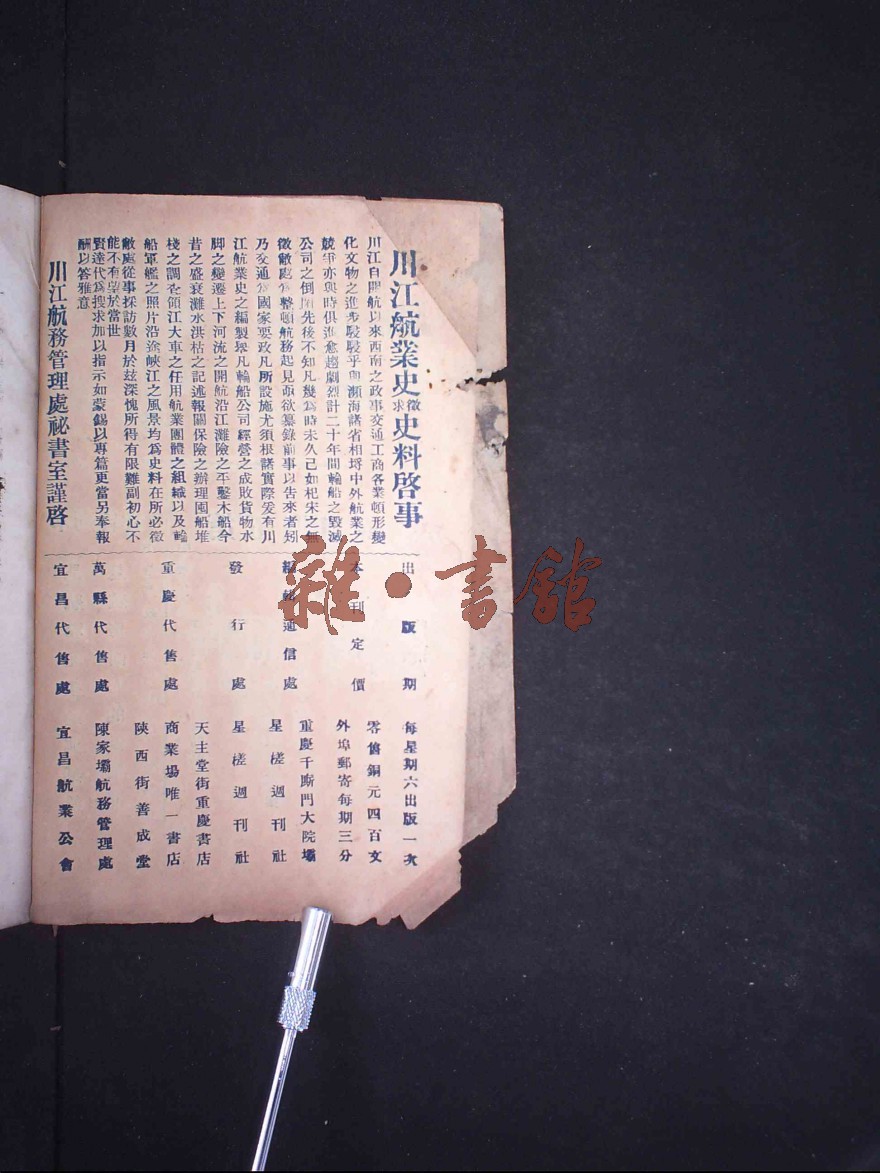 川江航業史徵求史料啓事
川江自開航以來西南之政事交通工商各業頓形變
化文物之進步駸駸乎與瀕海諸省相埒中外航業之
競爭亦與時俱進愈趨劇烈計二十年間輪船之毀滅
公司之倒閉先後不知凡幾爲時未久已如杞宋之無
徵敝處爲整頓航務起見亟欲纂錄前事以告來者矧
乃交通爲國家要政凡所設施尤須根諸實際爰有川
江航業史之編製舉凡輪船公司經營之成敗貨物水
脚之變遷上下河流之開航沿江灘險之平鑿木船今
昔之盛衰灘水洪枯之記述報關保險之辦理囤船堆
棧之調查領江大車之任用航業團體之組織以及輪
船軍艦之照片沿途峽江之風景均爲史料在所必徵
敝處從事採訪數月於玆深愧所得有限難副初心不
能不有望於當世
賢達代爲搜求加以指示如蒙錫以專篇更當另奉報
酬以答雅意
川江航務管理處祕書室謹啓
出版期 每星期六出版一次
本刊定價 零售銅元四百文
外埠郵寄每期三分
編輯通信處 重慶千厮門大院壩
星槎週刊社
發行處 星槎週刊社
重慶代售處 天主堂街重慶書店
商業場唯一書店
陝西街善成堂
萬縣代售處 陳家壩航務管理處
宜昌代售處 宜昌航業公會
雜·書館